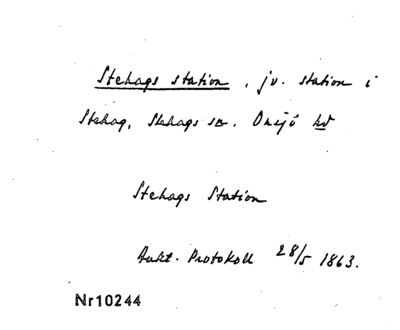 Stehags station, jv. station i
Stehag, Stehags sn. Onsjö hd
Stehags Station
Aukt. Protokoll 28/5 1863.
Nr10244